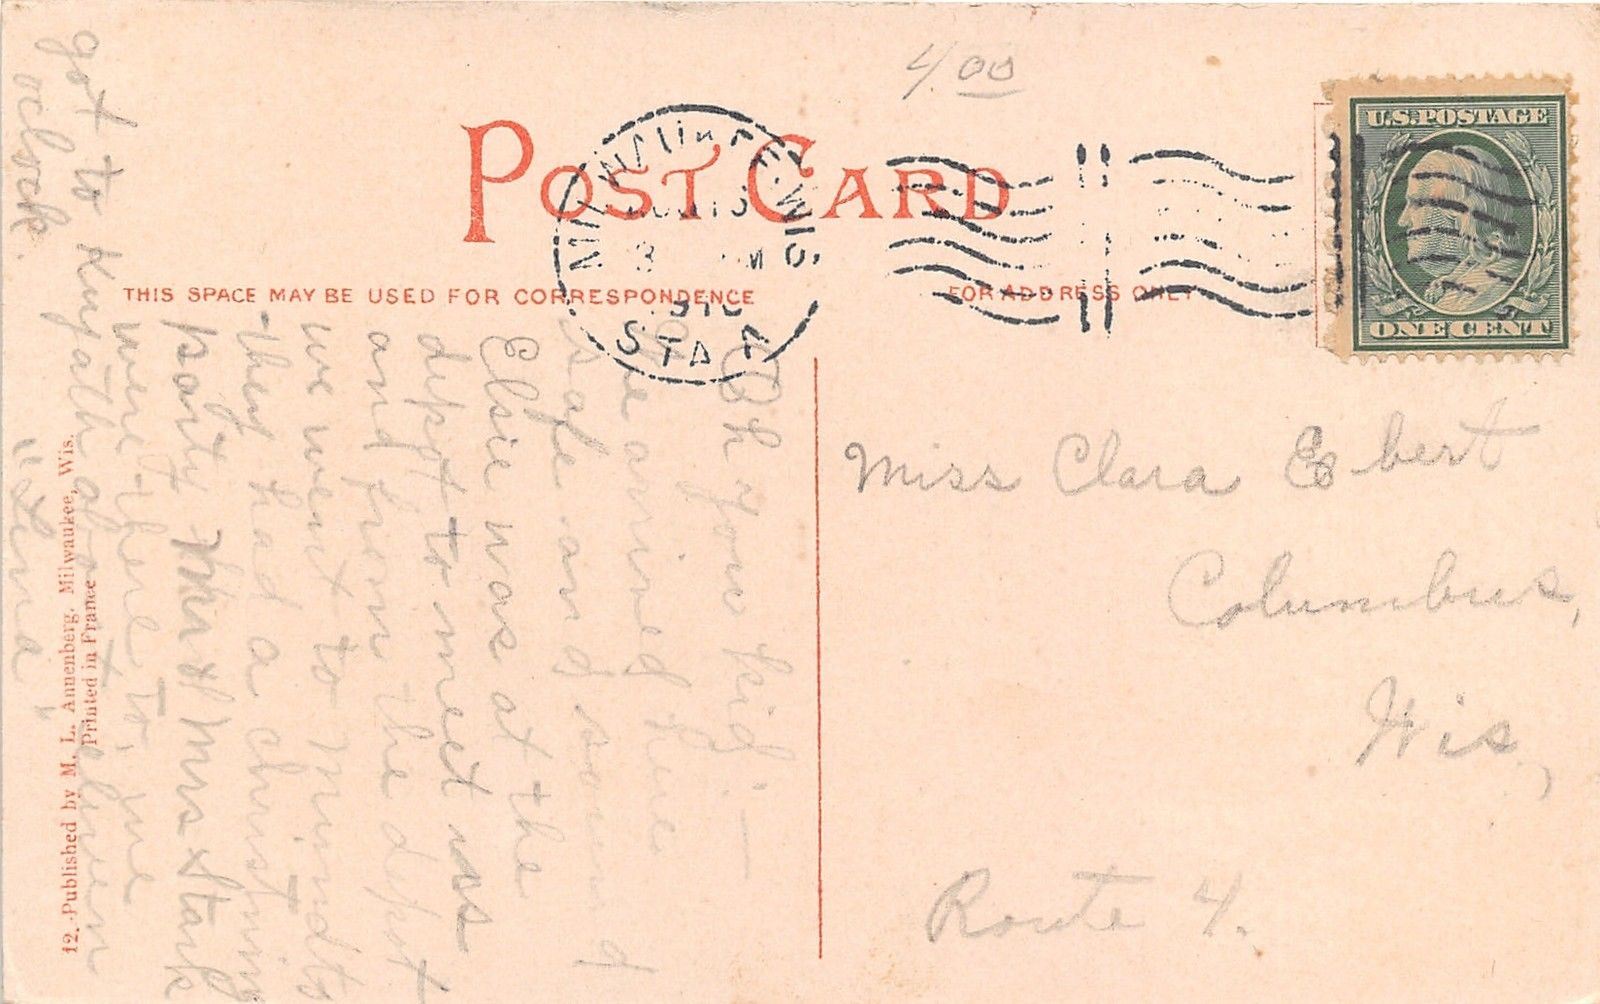 4.00
POST CARD
MILWAUKEE. WIS.
1910
STA 4
U.S. POSTAGE
ONE CENT
THIS SPACE MAY BE USED FOR CORRESPONDENCE
FOR ADDRESS ONLY
Oh you kid:—
We arrived here
safe and sound
Elsie was at the
depot to meet us
and from the depot
we went to
they had a christning
party Mrs Stark
were there to, we
got to about eleven
oclock.
"Lina"
Miss Clara Ebert
Columbus,
Wis,
Route 4.
12.-Published by M. L. Annenberg. Milwaukee, Wis.
Printed in France